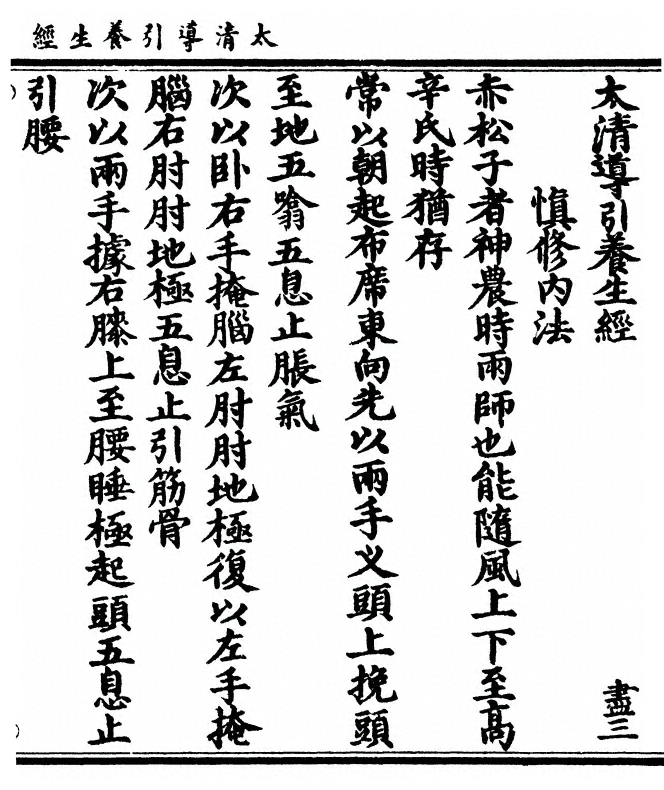 太清導引養生經
太清導引養生經 盡三
慎修內法
赤松子者神農時雨師也能隨風上下至高
辛氏時猶存
常以朝起布席東向先以兩手叉頭上挽頭
至地五噏五息止脹氣
次以卧右手掩腦左肘肘地極復以左手掩
腦右肘肘地極五息止引筋骨
次以兩手據右膝上至腰睡極起頭五息止
引腰